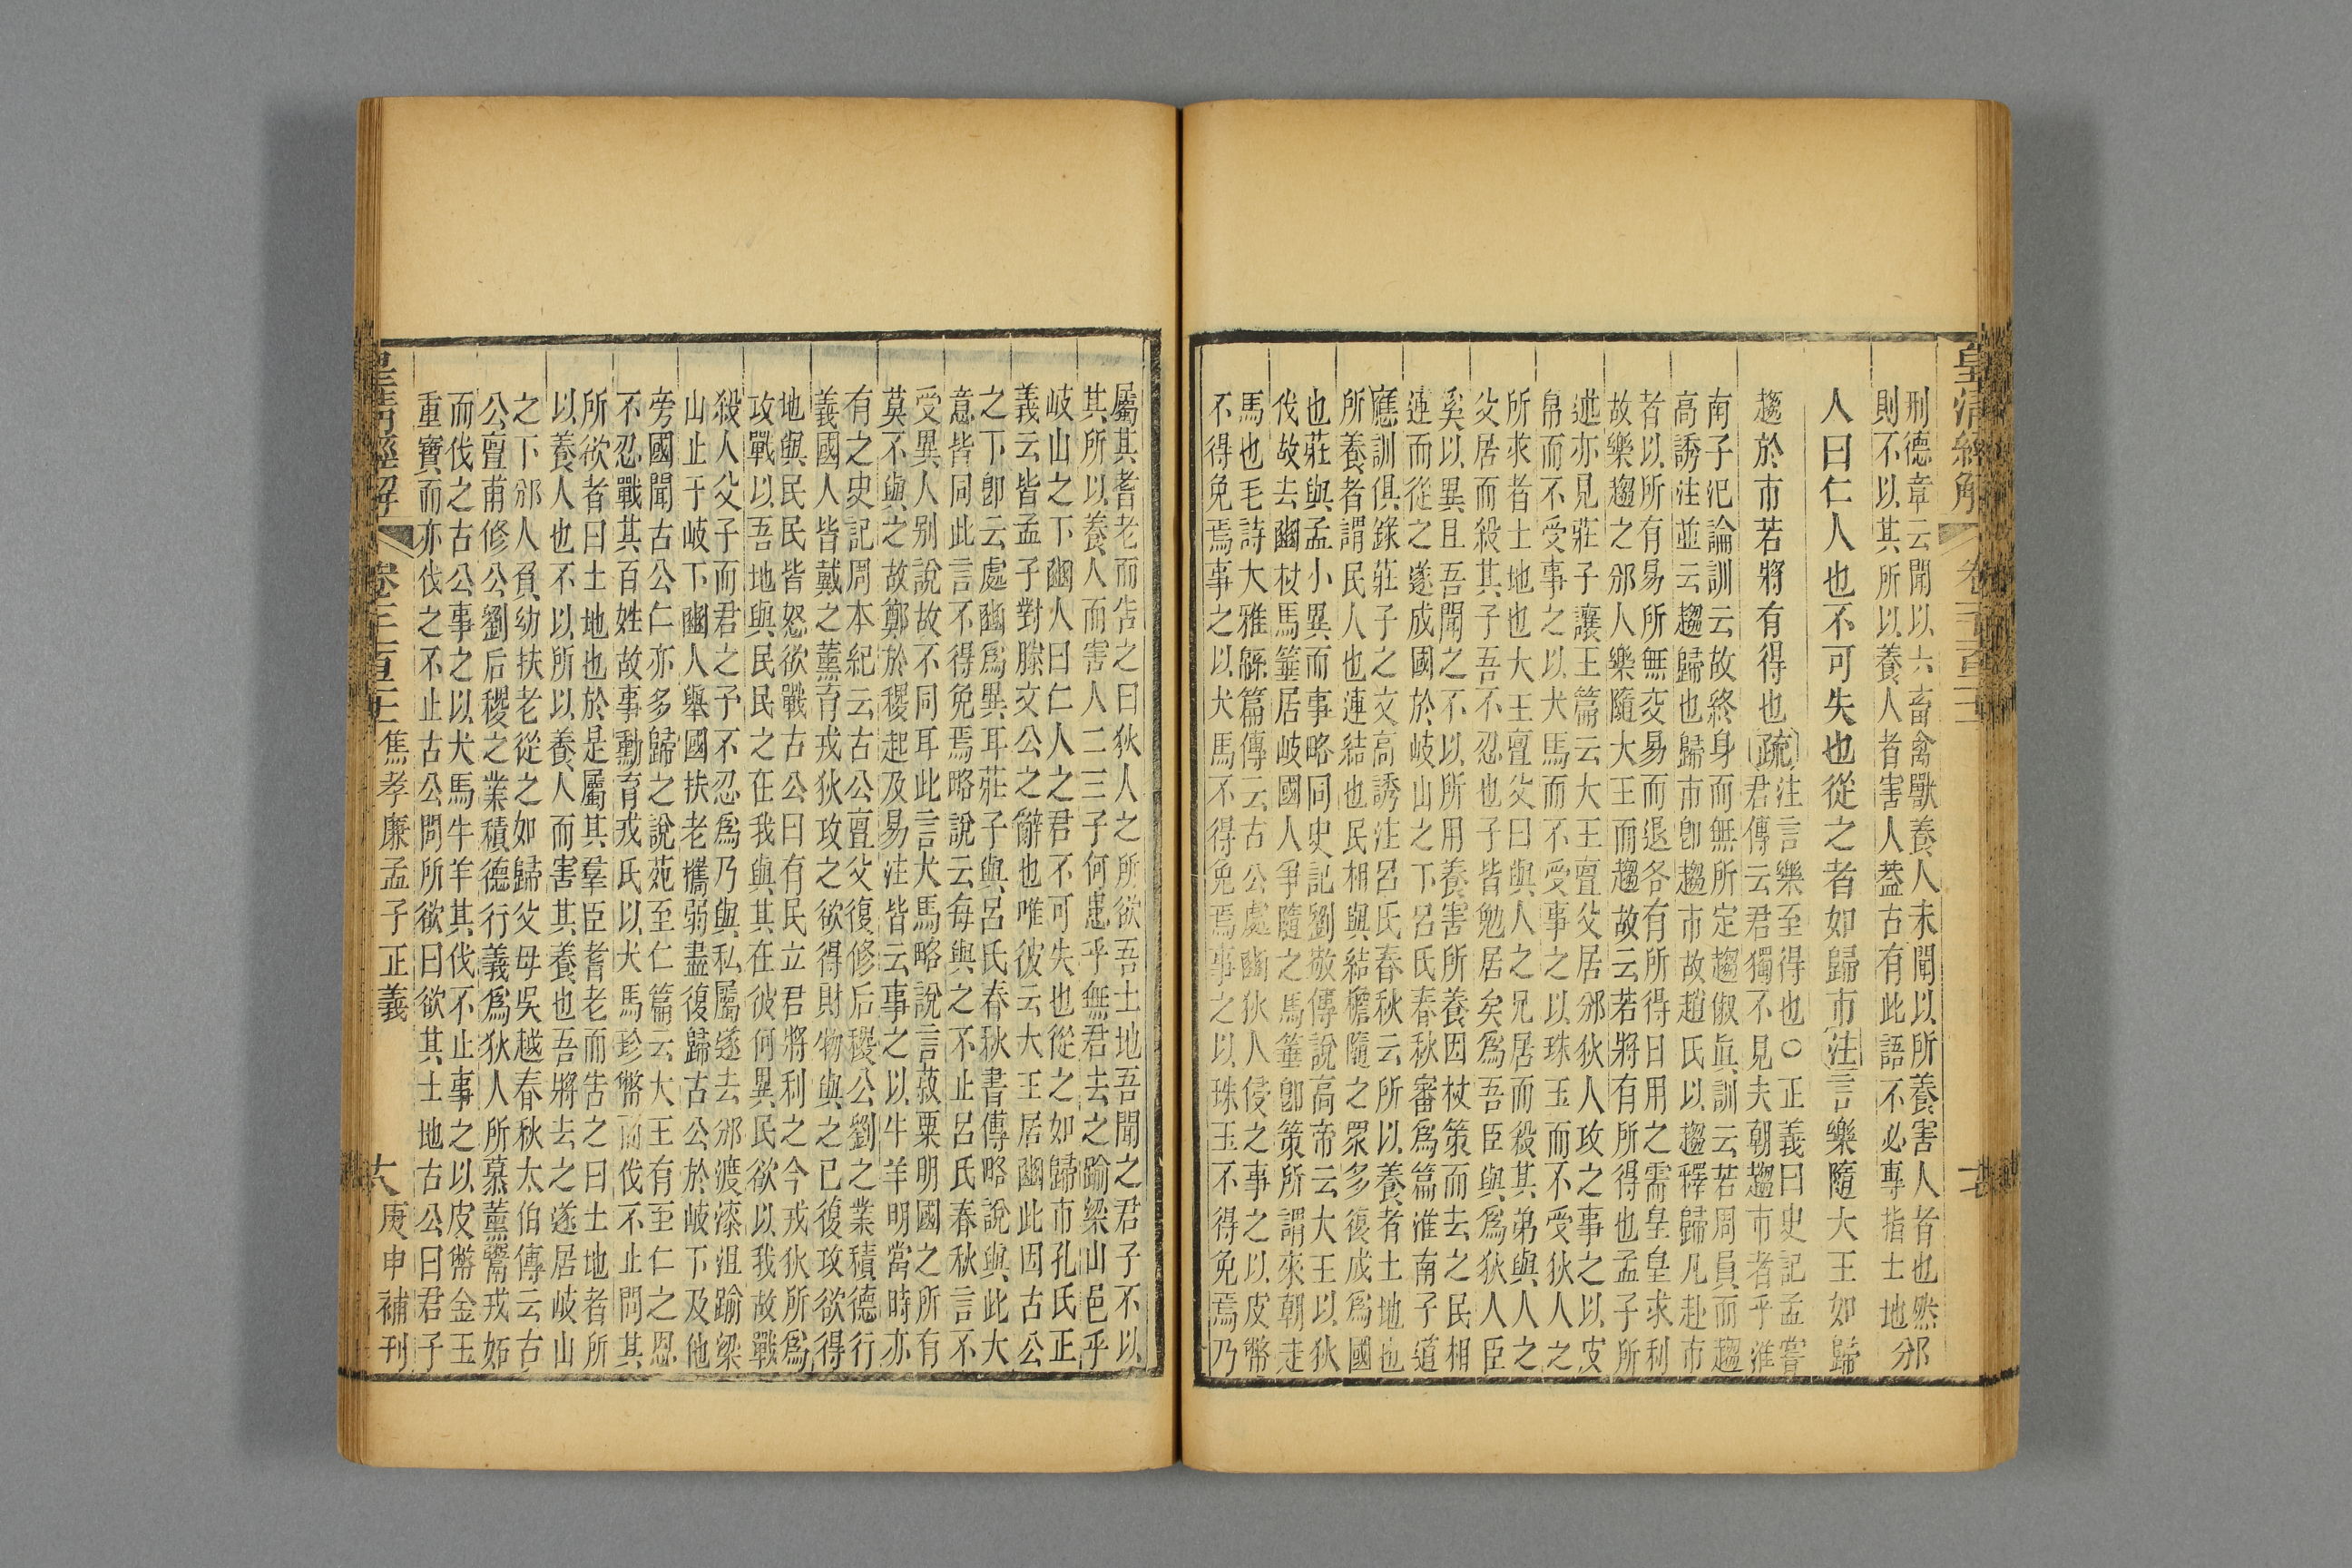 皇清經解
刑德章云聞以六畜禽獸養人未聞以所養害人者也然
則不以其所以養人者害人葢古有此語不必專指士地 邠
人曰仁人也不可失也從之者如歸市注言樂隨大王如歸
趨於市若將有得也疏注言樂至得也○正義曰史記孟嘗
君傳云君獨不見夫朝趨市者乎淮
南子氾論訓云故終身而無所定趨俶眞訓云若周員而趨
高誘注並云趨歸也歸市卽趨市故趙氏以趨釋歸凡赴市
者以所有易所無交易而退各有所得日用之需皇皇求利
故樂趨之邠人樂隨大王而趨故云若將有所得也孟子所
述亦見莊子讓王篇云大王亶父居邠狄人攻之事之以皮
帛而不受事之以犬馬而不受事之以珠玉而不受狄人之
所求者土地也大王亶父曰與人之兄居而殺其弟與人之
父居而殺其子吾不忍也子皆勉居矣爲吾臣與爲狄人臣
奚以異且吾聞之不以所用養害所養因杖策而去之民相
連而從之遂成國於岐山之下呂氏春秋審爲篇淮南子道
應訓俱錄莊子之文高誘注呂氏春秋云所以養者土地也
所養者謂民人也連結也民相與結檐隨之眾多復成爲國
也莊與孟小異而事略同史記劉敬傳說高帝云大王以狄
伐故去豳杖馬箠居岐國人爭隨之馬箠卽策所謂來朝走
馬也毛詩大雅緜篇傳云古公處豳狄人侵之事之以皮幣
不得免焉事之以犬馬不得免焉事之以珠玉不得免焉乃
屬其耆老而告之曰狄人之所欲吾土地吾聞之君子不以
其所以養人而害人二三子何患乎無君去之踰梁山邑乎
岐山之下豳人曰仁人之君不可失也從之如歸市孔氏正
義云皆孟子對滕文公之辭也唯彼云大王居豳此因古公
之下卽云處豳爲異耳莊子與呂氏春秋書傳略說與此大
意皆同此言不得免焉略說云每與之不止呂氏春秋言不
受異人別說故不同耳此言犬馬略說言菽粟明國之所有
莫不與之故鄭於稷起及易注皆云事之以牛羊明當時亦
有之史記周本紀云古公亶父復修后稷公劉之業積德行
義國人皆戴之薰育戎狄攻之欲得財物與之已復攻欲得
地與民民皆怒欲戰古公曰有民立君將利之今戎狄所爲
攻戰以吾地與民民之在我與其在彼何異民欲以我故戰
殺人父子而君之予不忍爲乃與私屬遂去邠渡漆沮踰梁
山止于岐下豳人舉國扶老攜弱盡復歸古公於岐下及他
旁國聞古公仁亦多歸之說苑至仁篇云大王有至仁之恩
不忍戰其百姓故事勳育戎氏以犬馬珍幣而伐不止問其
所欲者曰土地也於是屬其羣臣耆老而告之曰土地者所
以養人也不以所以養人而害其養也吾將去之遂居岐山
之下邠人負幼扶老從之如歸父母吳越春秋太伯傳云古
公亶甫修公劉后稷之業積德行義爲狄人所慕薰鬻戎姤
而伐之古公事之以犬馬牛羊其伐不止事之以皮幣金玉
重寶而亦伐之不止古公問所欲曰欲其土地古公曰君子
皇清經解 焦孝廉孟子正義 六 庚申補刊